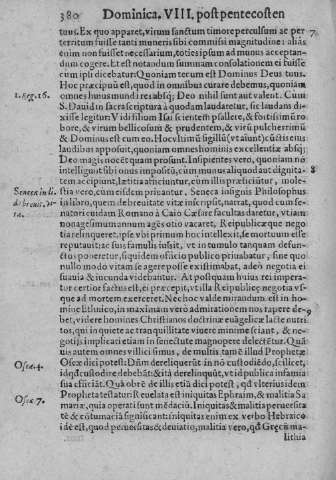 380 Dominica. VIII. post pentecosten
tuus. Ex quo apparet, virum sanctum timore perculsum ac per
territum fuisse tanti muneris sibi commissi magnitudine: aliàs
enim non fuisset necessarium, toties ipsum ad munus acceptan-
dum cogere. Et est notandum summam consolationem ei fuisse
cum ipsi dicebatur: Quoniam tecum est Dominus Deus tuus.
Hoc præcipuū est, quod in omnibus curare debemus, quoniam
1. Reg. 16. omnes huius mundi res absq; Deo nihil sunt aut valent. Cum
S. Dauid in sacra scriptura à quodam laudaretur, sic laudam di-
xisse legitur: Vidi filium Isai scientem psallere, & fortissimū ro
bore, & virum bellicosum & prudentem, & virū pulcherrimū
& Dominus est cum eo. Hoc
laudibus apposuit, quoniam omnes hominis excellentiæ absq;
Deo magis nocēt quam prosunt. Insipientes vero, quoniam nō
intelligunt sibi onus impositū, cum munus aliquod aut dignita- 8
tem accipiunt, lætitia afficiuntur, cum illis præficiútur, mole-
Seneca in li. stia vero, cum eisdem priuantur. Seneca insignis Philosophus
de breuit. vi- in libro, quem de breuitate vitæ inscripsit, narrat, quod cum se-
tæ. natori cuidam Romano à Caio Cæsare facultas daretur, vt iam
nonagesimum annum agēs otio vacaret, Reipublicæ que nego
tia relinqueret, ipse vt primum hoc intellexit, se mortuum esse
reputauit: ac suis famulis iussit, vt in tumulo tanquam defun-
ctus poneretur, siquidem officio publico priuabatur, sine quo
nullo modo vitam se agere posse existimabat, adeò negotia ei
suauia & iucunda videbantur. At postquam huius rei impera-
tor certior factus est, ei præcepit, vt illa Reipublicę negotia vs-
que ad mortem exerceret. Nec hoc valde mirandum est in ho-
mine Ethnico, in maximam vero admirationem nos rapere de- 9
bet, videre homines Christianos doctrinæ euāgelicæ lacte nutri
tos, qui in quiete ac tranquillitate viuere minime sciant, & ne-
gotijs implicari etiam in senectute magnopere delectētur. Quā
uis autem omnes vllici simus, de multis tamē illud Prophetæ
Osee. 4. Oseæ dici potest: Dñm dereliquerūt in nō custodiēdo, scilicet,
id, qd custodire debebāt: & ità derelinquūt, vt id publica infamia
sua efficiāt. Quā obrē de illis etiā dici potest, qd vlterius idem
Osee. 7. Propheta testatur: Reuelata est iniquitas Ephraim, & malitia Sa
mariæ, quia operati sunt mēdaciū. Iniquitas & malitia peruersita
tē & cōtumaciā significant: iniquitas enim ex verbo Hebraico
idē est, quod peruersitas & deuiatio, malitia vero, qd Græcū ma-
lithia